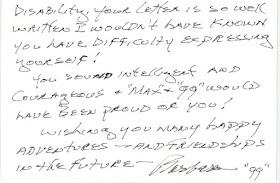 DISABILITY, YOUR LETTER IS SO WELL
WRITTEN I WOULDN'T HAVE KNOWN
YOU HAVE DIFFICULTY EXPRESSING
YOURSELF!
YOU SOUND INTELLIGENT AND
COURAGEOUS & "MAX" & "99" WOULD
HAVE BEEN PROUD OF YOU!
WISHING YOU MANY HAPPY
ADVENTURES — AND FRIENDSHIPS
IN THE FUTURE — Barbara "99"